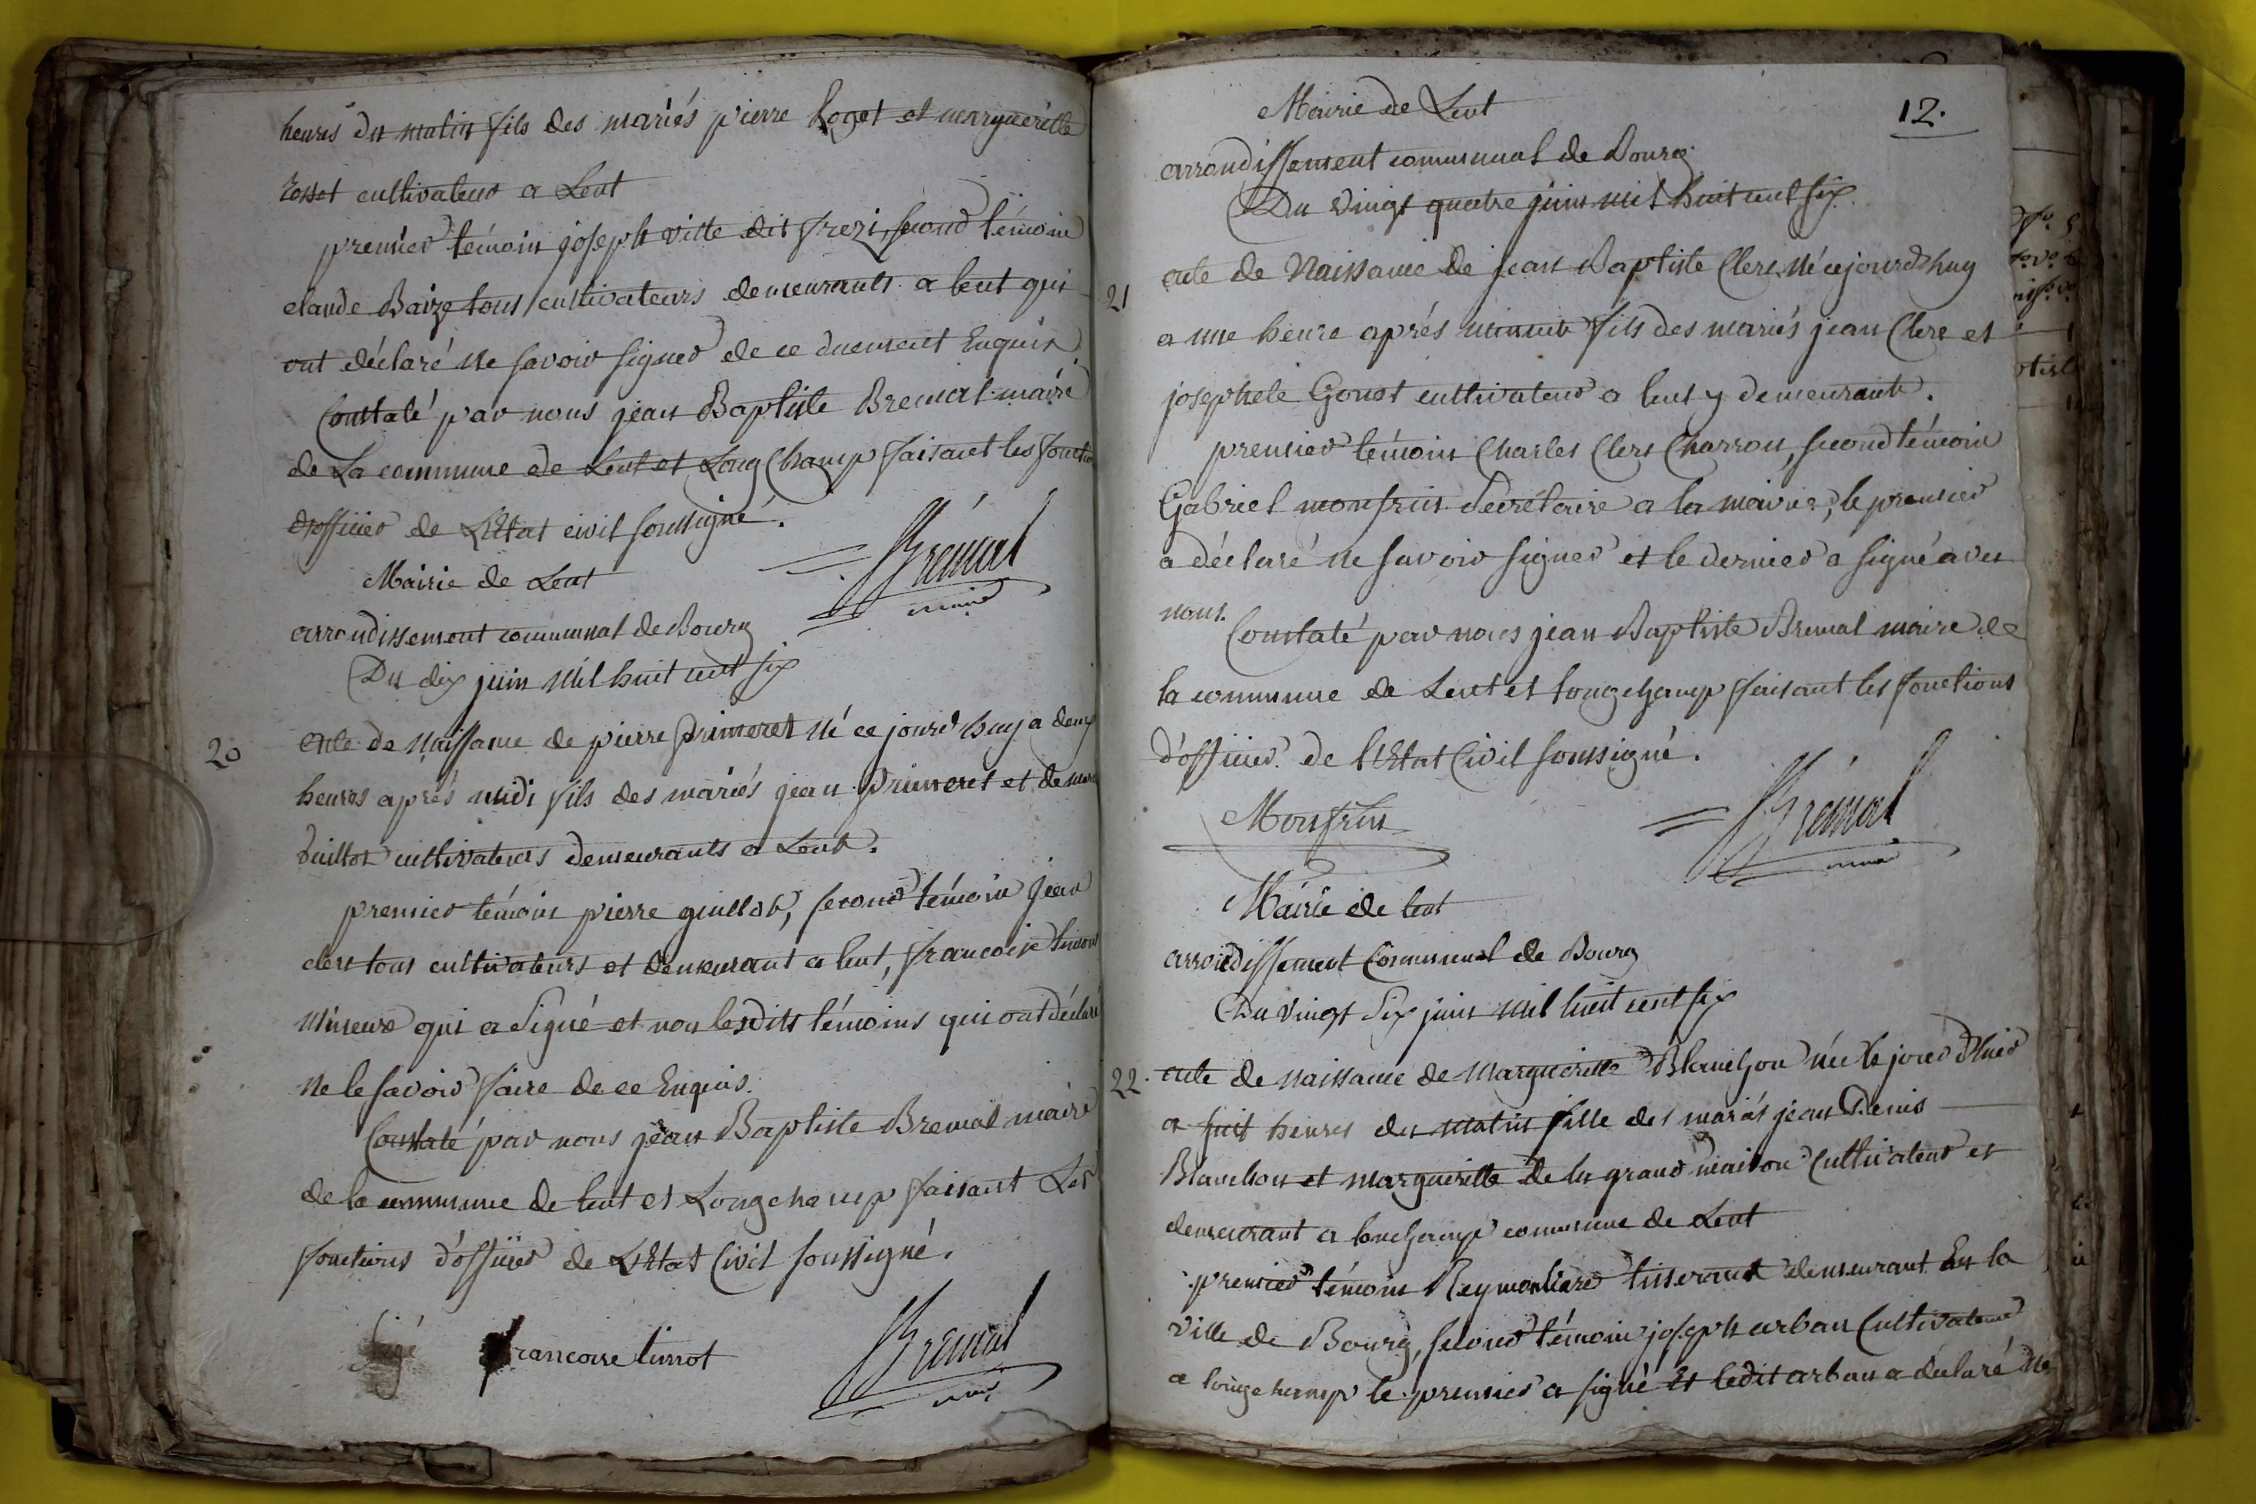 heures du matin fils des mariés pierre Roget et margueritte
rosset cultivateur a Lent
premier témoin joseph ville dit frezi, second témoin
claude Baize tous cultivateurs demeurants a lent qui
ont déclaré ne savoir signer de ce duement Enquis.
Constaté par nous jean Baptiste Bremal maire
de La commune de Lent et Long Champ faisant les foncti
d'officier de L'Etat civil soussigné.
Bremal
maire
Mairie de Lent
arrondissement communal de Bourg
Du dix juin mil huit cent six
20
acte de naissance de pierre primeret né ce jourd'huy a deux
heures après midi fils des mariés jean primeret et de
Guillot cultivateurs demeurants a Lent.
premier témoin pierre guillot, second témoin jean
clert tous cultivateurs et demeurant a lent, francoise
mineure qui a signé et non lesdits témoins qui ont déclaré
ne le savoir faire de ce Enquis.
Constaté par nous jean Baptiste Bremal maire
de la commune de lent et Longchamp faisant Les
fonctions d'officier de L'Etat Civil soussigné.
francoise timot
Bremal
maire
12.
Mairie de Lent
arrondissement communal de Bourg
Du vingt quatre juin mil huit cent six.
21
acte de Naissance de jean Baptiste Clert né cejourdhuy
a une heure après minuit fils des mariés jean Clert et
josephete Gonot cultivateur a lent y demeurant.
premier témoin Charles Clert Charron, second témoin
Gabriel monfrin secrétaire a la mairie; le premier
a déclaré ne savoir signer et le dernier a signé avec
nous.
Constaté par nous jean Baptiste Bremal maire de
la commune de Lent et longchamp faisant les fonctions
d'officier de l'Etat Civil soussigné.
Monfrin
Bremal
maire
Mairie de lent
arrondissement Communal de Bourg
Du vingt Six juin mil huit cent six
22.
acte de naissance de Margueritte Blanchon née le jour d'hier
a huit heures du matin fille des mariés jean Denis
Blanchon et margueritte de la grand maison Cultivateur et
demeurant a lonchamp commune de Lent
premier témoin Reymonliere tisserant demeurant En la
ville de Bourg, second témoin joseph arban Cultivateur
a longchamp le premier a signé Et ledit arban a déclaré ne